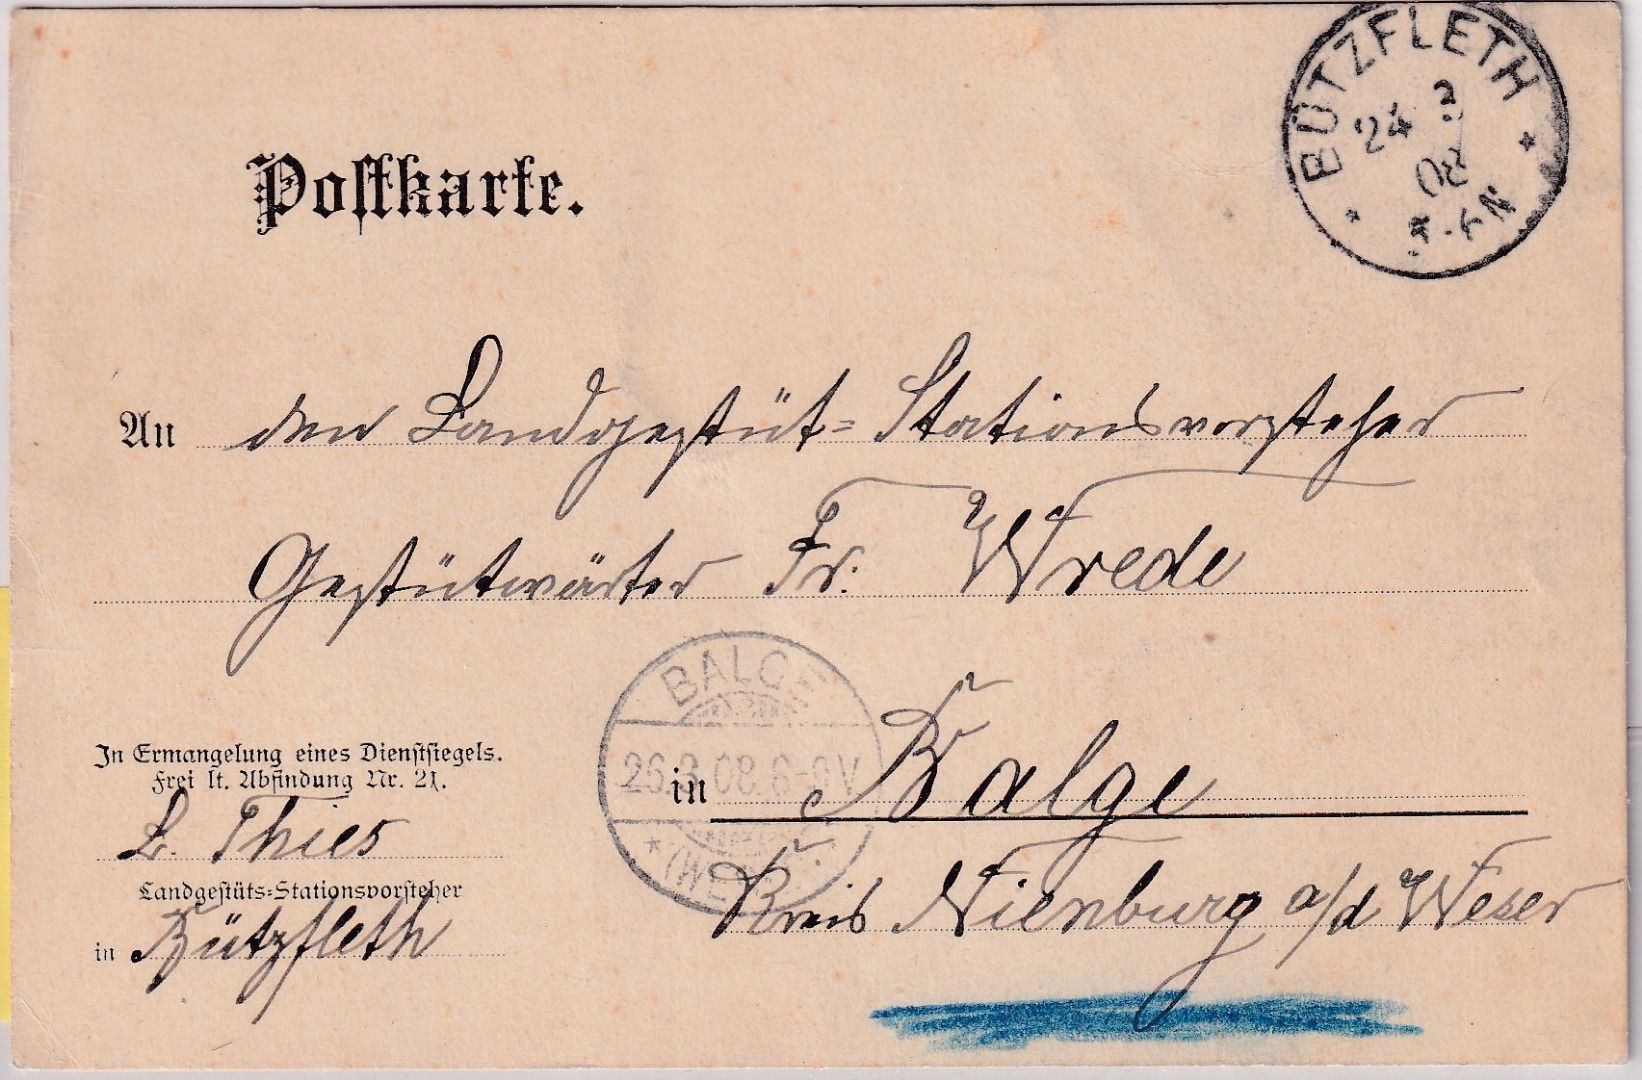 BÜTZFLETH
24 3
08
N
Postkarte.
An den Landgestüt=Stationsvorsteher
Gestütwärter Fr. Wrede
BALGE
26.3.08.6-9V
in Balge
Kreis Nienburg a/d Weser
In Ermangelung eines Dienstsiegels.
Frei lt. Abfindung Nr. 21.
L. Thies
Landgestüts=Stationsvorsteher
in Bützfleth